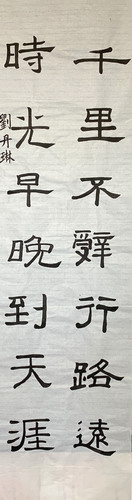 千里不辤行路遠
時光早晚到天涯
劉丹琳